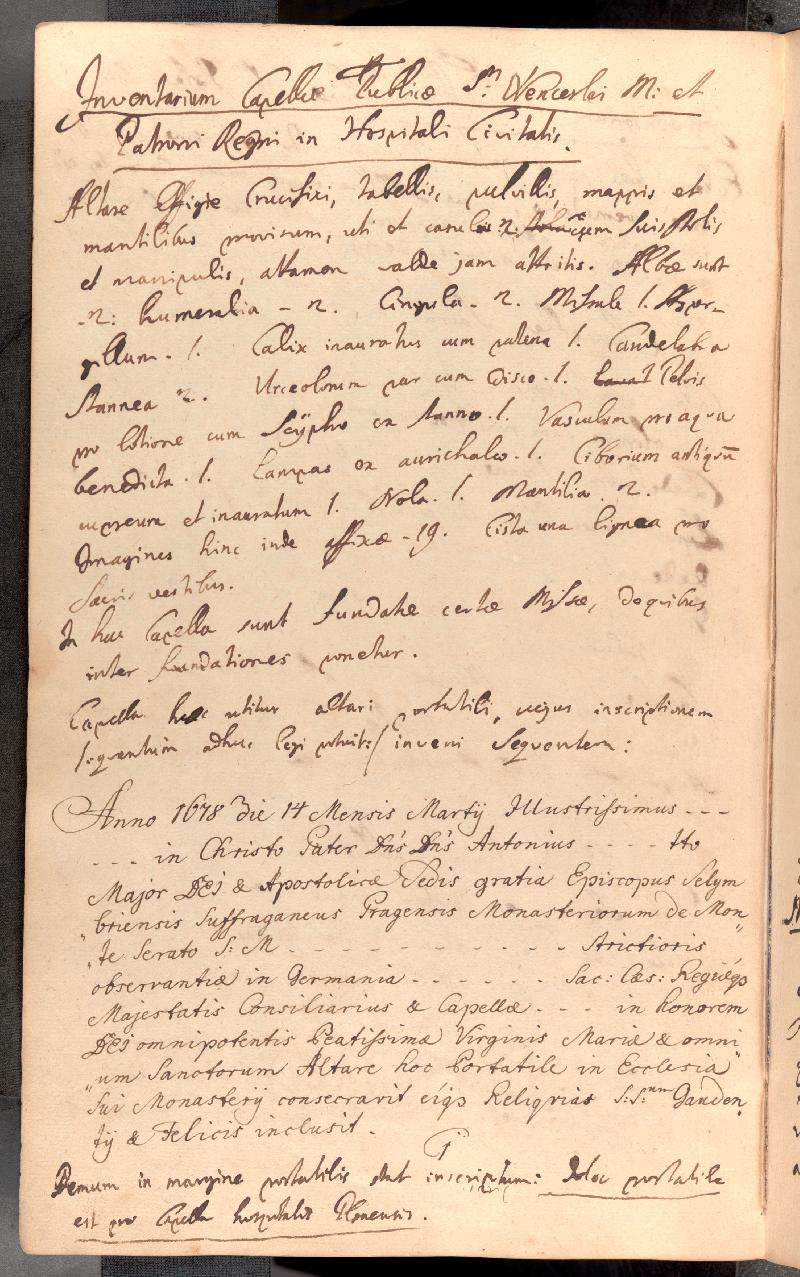 Inventarium Capellæ Publicæ Sti Wenceslai M: et
Patroni Regni in Hospitali Civitatis.
Altare Effigie Crucifixi, tabellis, pulvillis, mappis et
mantilibus provisum, uti et casulis 2. cum suis stolis
et manipulis, attamen valde jam attritis. Albæ sunt
-2: humeralia - 2. Cingula - 2. Missale 1. Asper-
gillum - 1. Calix inauratus cum patena 1. Candelabra
stannea 2. Urceolorum par cum disco - 1. Pelvis
pro lotione cum Scÿpho ex stanno - 1. Vasculum pro aqua
benedicta - 1. Lampas ex aurichalco - 1. Ciborium antiquū
cupreum et inauratum 1. Nola - 1. Mantilia 2.
Imagines hinc inde affixæ - 19. Cista una lignea pro
Sacris vestibus.
In hac Capella sunt fundatæ certæ Missæ, de quibus
inter fundationes ponetur.
Capella hæc utitur altari portatili, cujus inscriptionem
/: quantum adhuc legi potuit :/ inveni Sequentem:
Anno 1678 Die 14 Mensis Martÿ Illustrissimus - - -
- - - in Christo Pater Dn̄s Dn̄s Antonius - - - - tto
Major DEI & Apostolicæ Sedis gratia Episcopus Selym
„briensis Suffraganeus Pragensis Monasteriorum de Mon„
„te Serato S: M - - - - - - - - - - - Strictioris
observantiæ in Germania - - - - - - Sac: Cæs: Regiéqȝ
Majestatis Consiliarius & Capellæ - - - in honorem
DEI omnipotentis Beatissimæ Virginis Mariæ & omni
„um Sanctorum Altare hoc Portatile in Ecclesia
Sui Monasterÿ consecravit eiqȝ Religvias S:S:num Gauden„
tÿ & Felicis inclusit.
Demum in margine portatilis stat inscriptum: Hoc portatile
est pro Capella hospitalis Plsnensis.